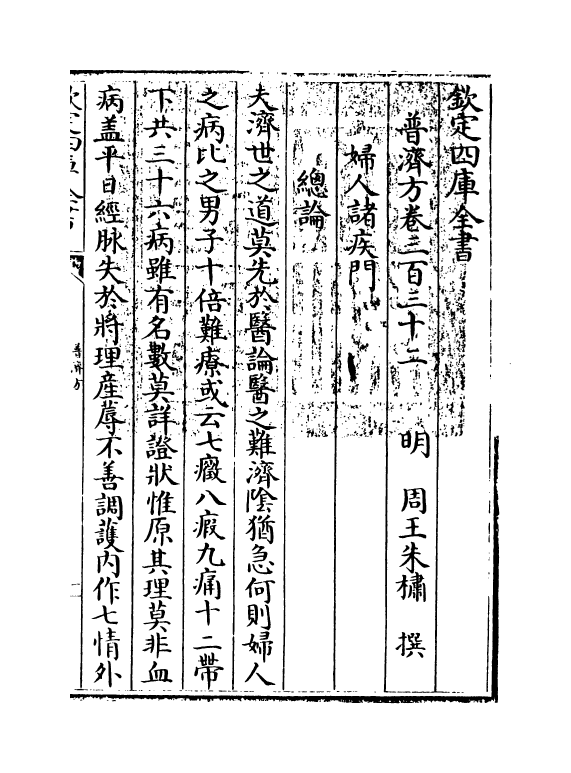 欽定四庫全書
普濟方卷三百三十二
明 周王朱橚 撰
婦人諸疾門
總論
夫濟世之道莫先於醫論醫之難濟陰猶急何則婦人
之病比之男子十倍難療或云七癥八瘕九痛十二帶
下共三十六病雖有名數莫詳證狀惟原其理莫非血
病蓋平日經脉失於將理産蓐不善調護内作七情外
普濟方